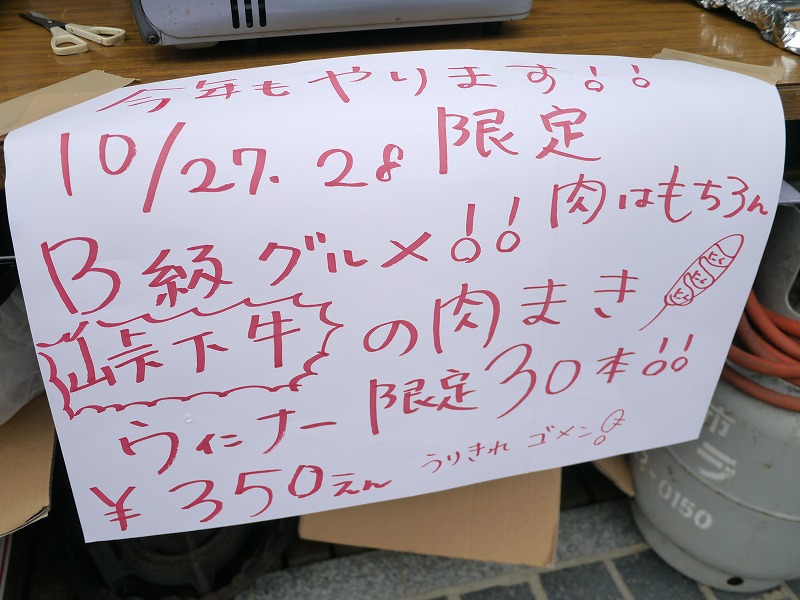 今年もやります!!
10/27.28 限定
B級グルメ!! 肉はもちろん
峠下牛の肉まき
ウィンナー 限定30本!!
¥350えん うりきれ ゴメン!
ホ
デ
-0150